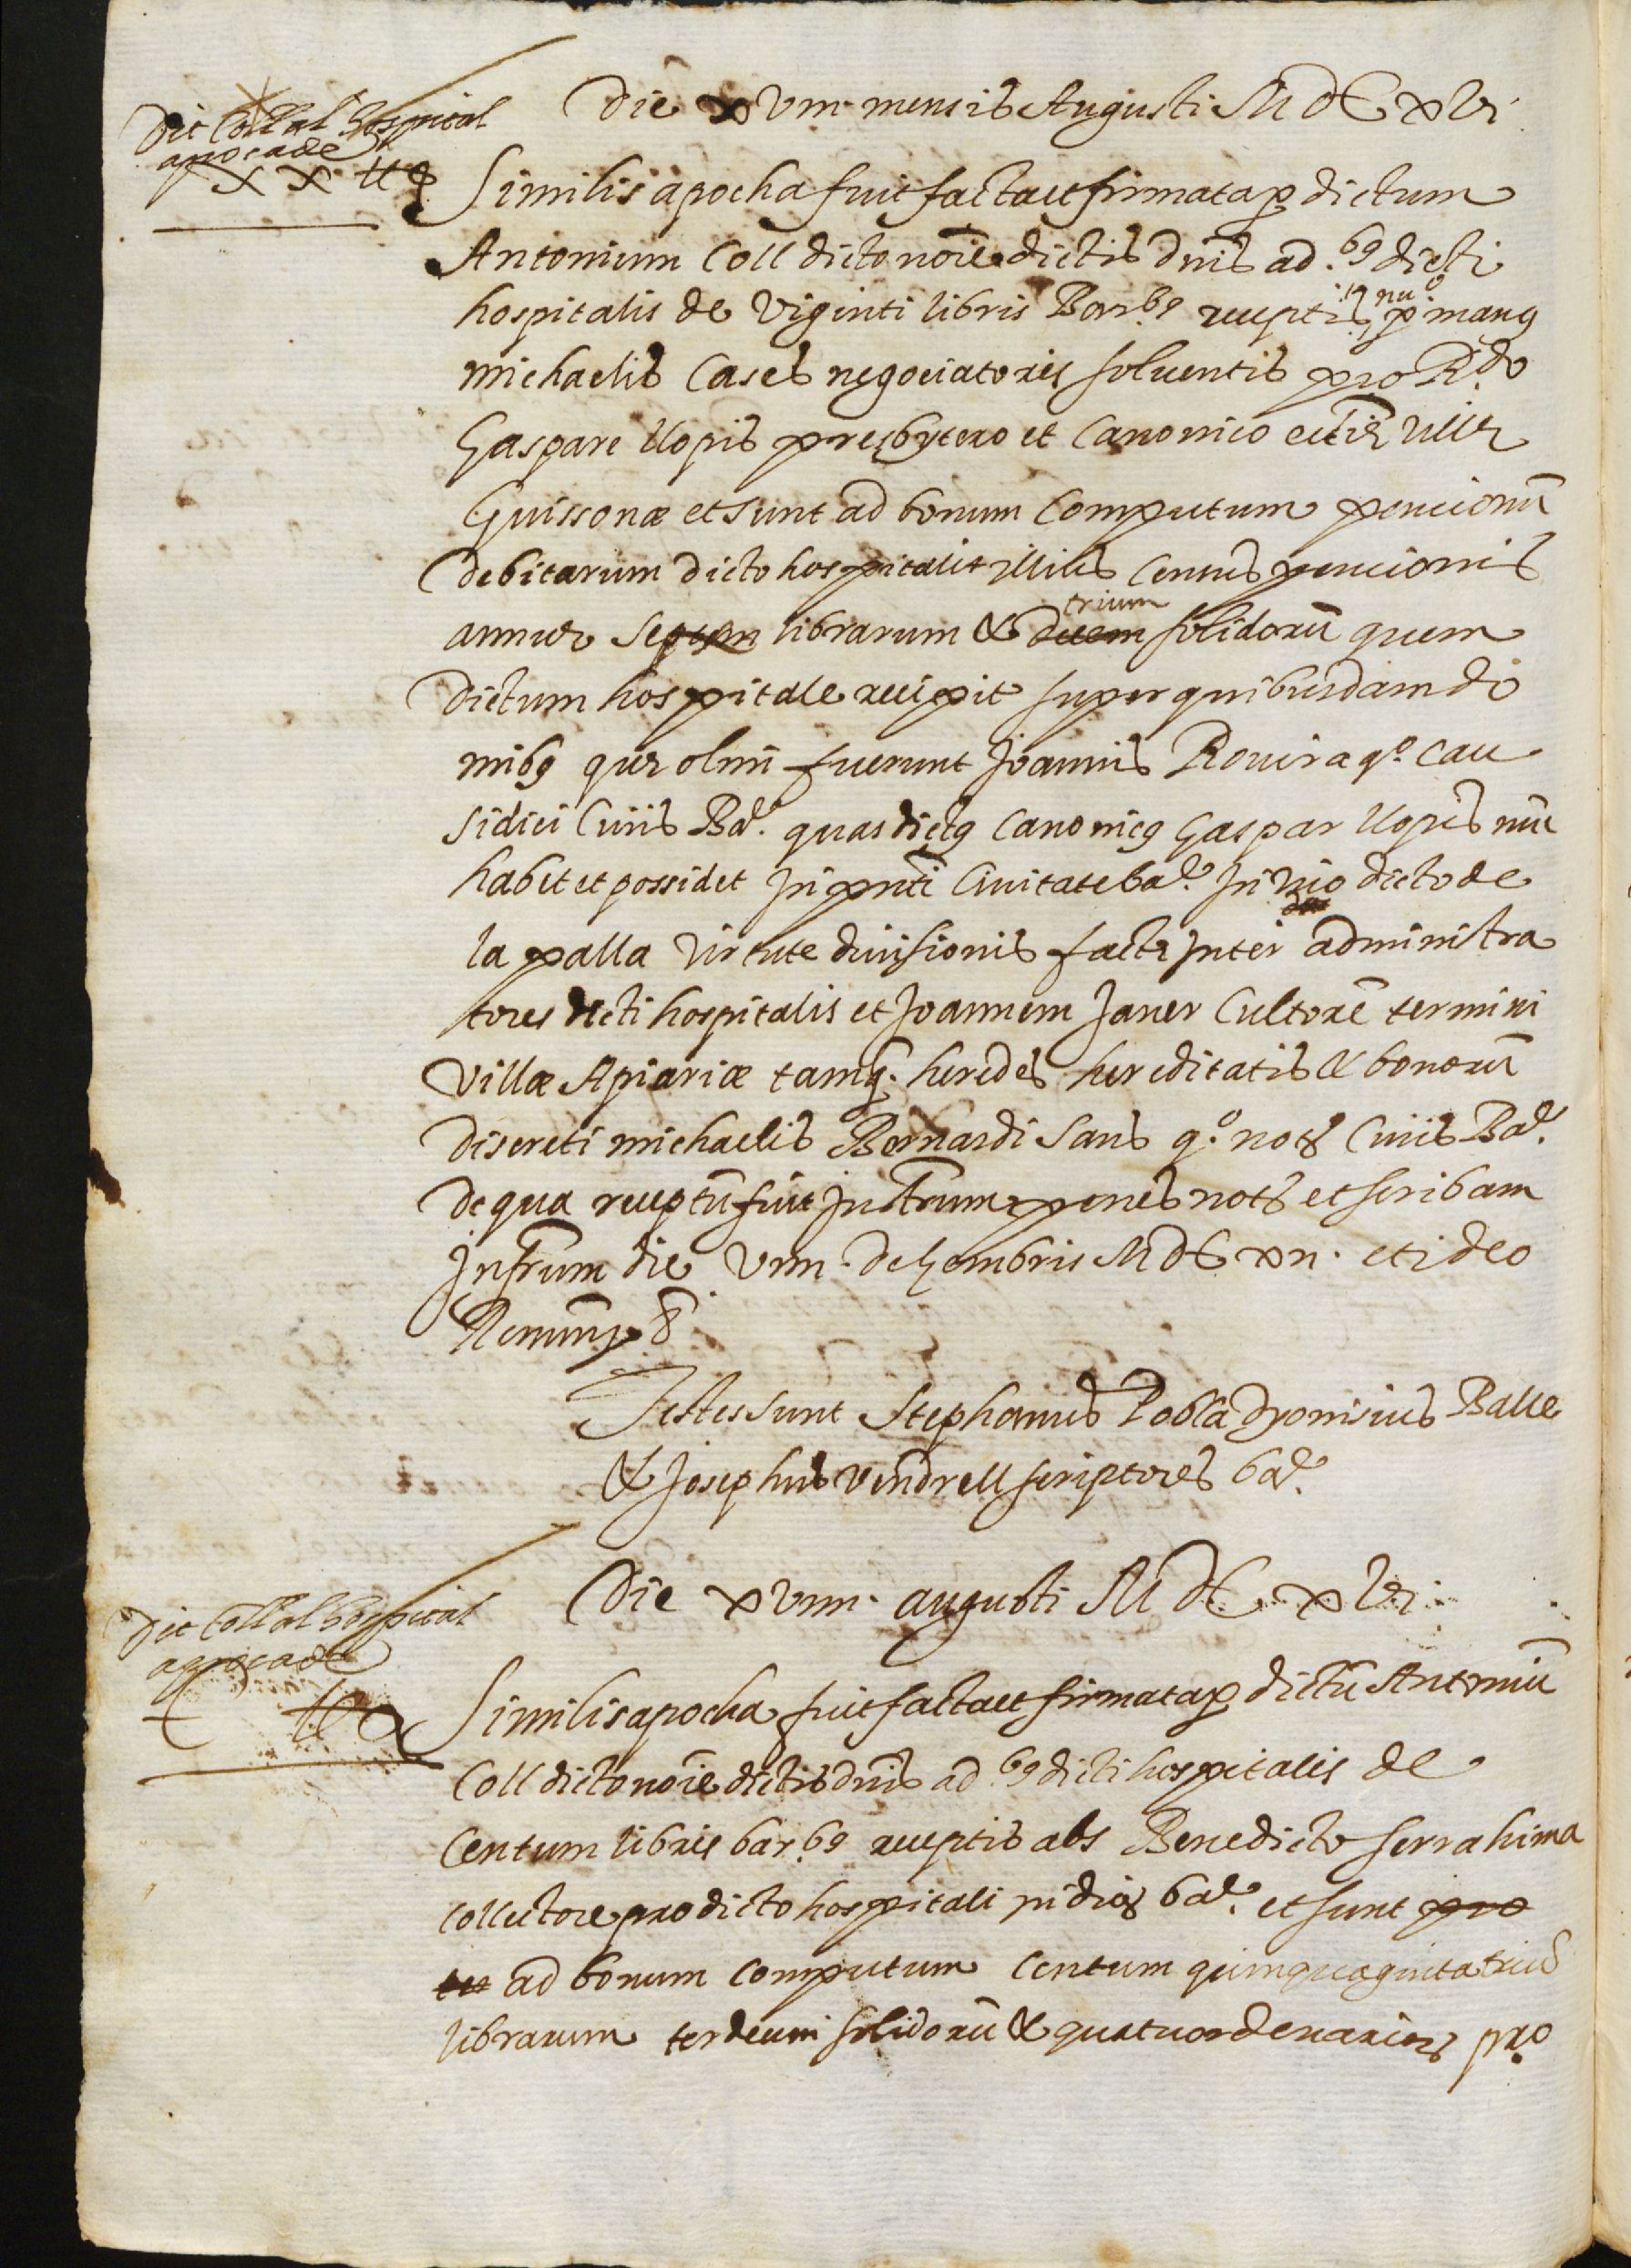 Die xviii mensis Augusti MdCxvi
Dit Coll al hospital
apoca de
xx ll
Similis apocha fuit facta et firmata p dictum
Antonium Coll dicto noie dictis dnis ad.bq dicti
hospitalis de viginti libris Bar.bq receptis p manq
michaelis Cases negociatoris solventis pro R.do
Gaspare llopis presbytero et Canonico
Guissonæ et sunt ad bonum computum pencionũ
debitarum dicto hospitali et illius census pencionis
annuæ septem librarum & decem trium solidorũ quem
dictum hospitale recipit super quibusdam do
mibq quæ olim fuerunt Joannis Rovira q.o cau
sidici Civis Ba.e quas dictq Canonicq Gaspar llopis nũc
habet et possidet in pnti Civitate ba.e in vico dicto de
la palla virtute divisionis factæ inter administra
tores dicti hospitalis et Joannem Janer Cultorẽ termini
villæ Apiariæ tamq. heredes hereditatis & bonorũ
discreti michaelis Bernardi Sans q.o not Civis Ba.e
de qua receptũ fuit Instrum penes not et scribam
infrum die viiii dezembris MdCxii et ideo
Renun
Testes sunt Stephanus Pobla dyonisius Balle
& Josephus vendrell scriptores ba.e
Die xviiii augusti MdCxvi
Dit Coll al hospital
apoca de
C ll
Similis apocha fuit facta et firmata p dictũ Antoniũ
Coll dicto noie dictis dnis ad.bq dicti hospitalis de
Centum libris bar.bq receptis abs Benedicto serrahima
collectore pro dicto hospitali in dioz ba.e et sunt pro
ad bonum computum centum quinquaginta trium
librarum terdecim solidorũ & quatuor denarior pro